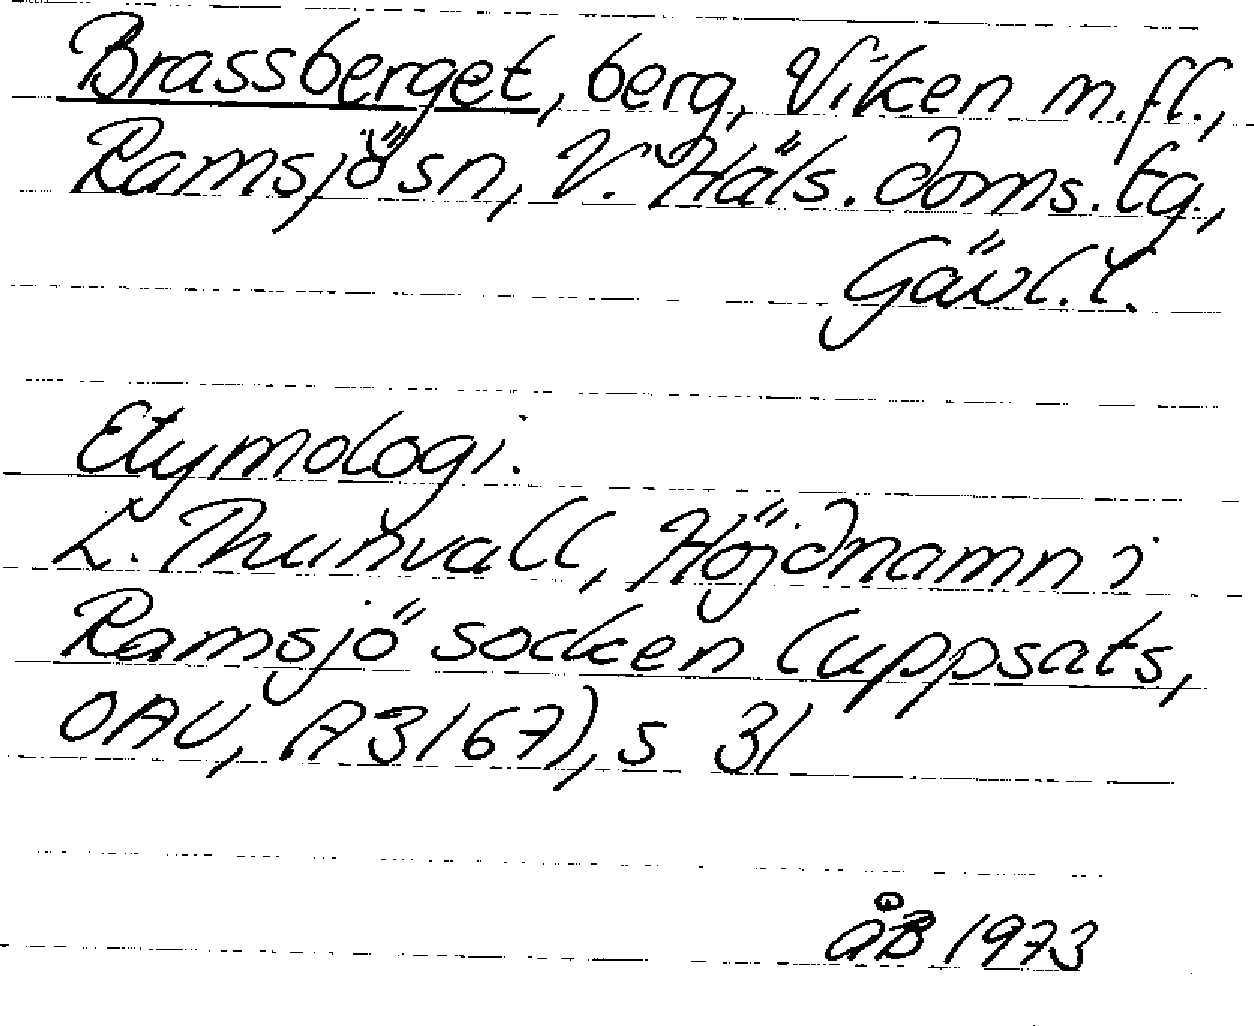 Brassberget, berg, Viken m.fl.,
Ramsjö sn, V. Häls. doms. tg.,
Gävl. l.
Etymologi.
L. Thunvall, Höjdnamn i
Ramsjö socken (uppsats,
OAU, A3167), s 31
ÅB 1973